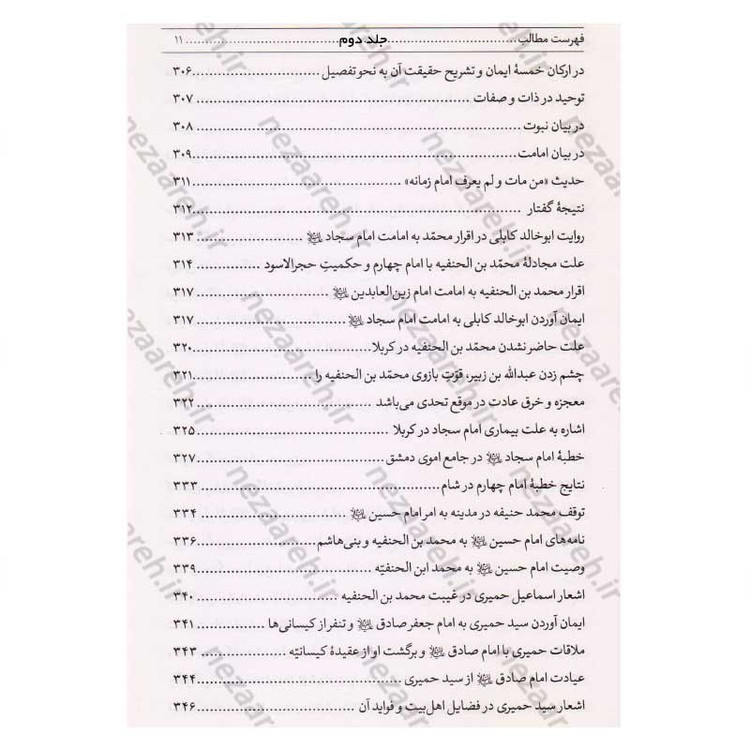 فهرست مطالب ........ جلد دوم ........ ۱۱
در ارکان خمسهٔ ایمان و تشریح حقیقت آن به نحو تفصیل ........ ۳۰۶
توحید در ذات و صفات ........ ۳۰۷
در بیان نبوت ........ ۳۰۸
در بیان امامت ........ ۳۰۹
حدیث «من مات و لم یعرف امام زمانه» ........ ۳۱۱
نتیجهٔ گفتار ........ ۳۱۲
روایت ابوخالد کابلی در اقرار محمّد به امامت امام سجاد ........ ۳۱۳
علت مجادلهٔ محمّد بن الحنفیه با امام چهارم و حکمیتِ حجرالاسود ........ ۳۱۴
اقرار محمد بن الحنفیه به امامت امام زین‌العابدین ........ ۳۱۷
ایمان آوردن ابوخالد کابلی به امامت امام سجاد ........ ۳۱۷
علت حاضر نشدن محمّد بن الحنفیه در کربلا ........ ۳۲۰
چشم زدن عبدالله بن زبیر، قوّتِ بازوی محمّد بن الحنفیه را ........ ۳۲۱
معجزه و خرق عادت در موقع تحدی می‌باشد ........ ۳۲۲
اشاره به علت بیماری امام سجاد در کربلا ........ ۳۲۵
خطبهٔ امام سجاد در جامع اموی دمشق ........ ۳۲۷
نتایج خطبهٔ امام چهارم در شام ........ ۳۳۳
توقف محمد حنیفه در مدینه به امر امام حسین ........ ۳۳۴
نامه‌های امام حسین به محمد بن الحنفیه و بنی‌هاشم ........ ۳۳۶
وصیت امام حسین به محمد ابن الحنفیّه ........ ۳۳۹
اشعار اسماعیل حمیری در غیبت محمد بن الحنفیه ........ ۳۴۰
ایمان آوردن سید حمیری به امام جعفر صادق و تنفر از کیسانی‌ها ........ ۳۴۱
ملاقات حمیری با امام صادق و برگشت او از عقیدهٔ کیسانیّه ........ ۳۴۳
عیادت امام صادق از سید حمیری ........ ۳۴۴
اشعار سید حمیری در فضایل اهل‌بیت و فواید آن ........ ۳۴۶
nezaareh.ir